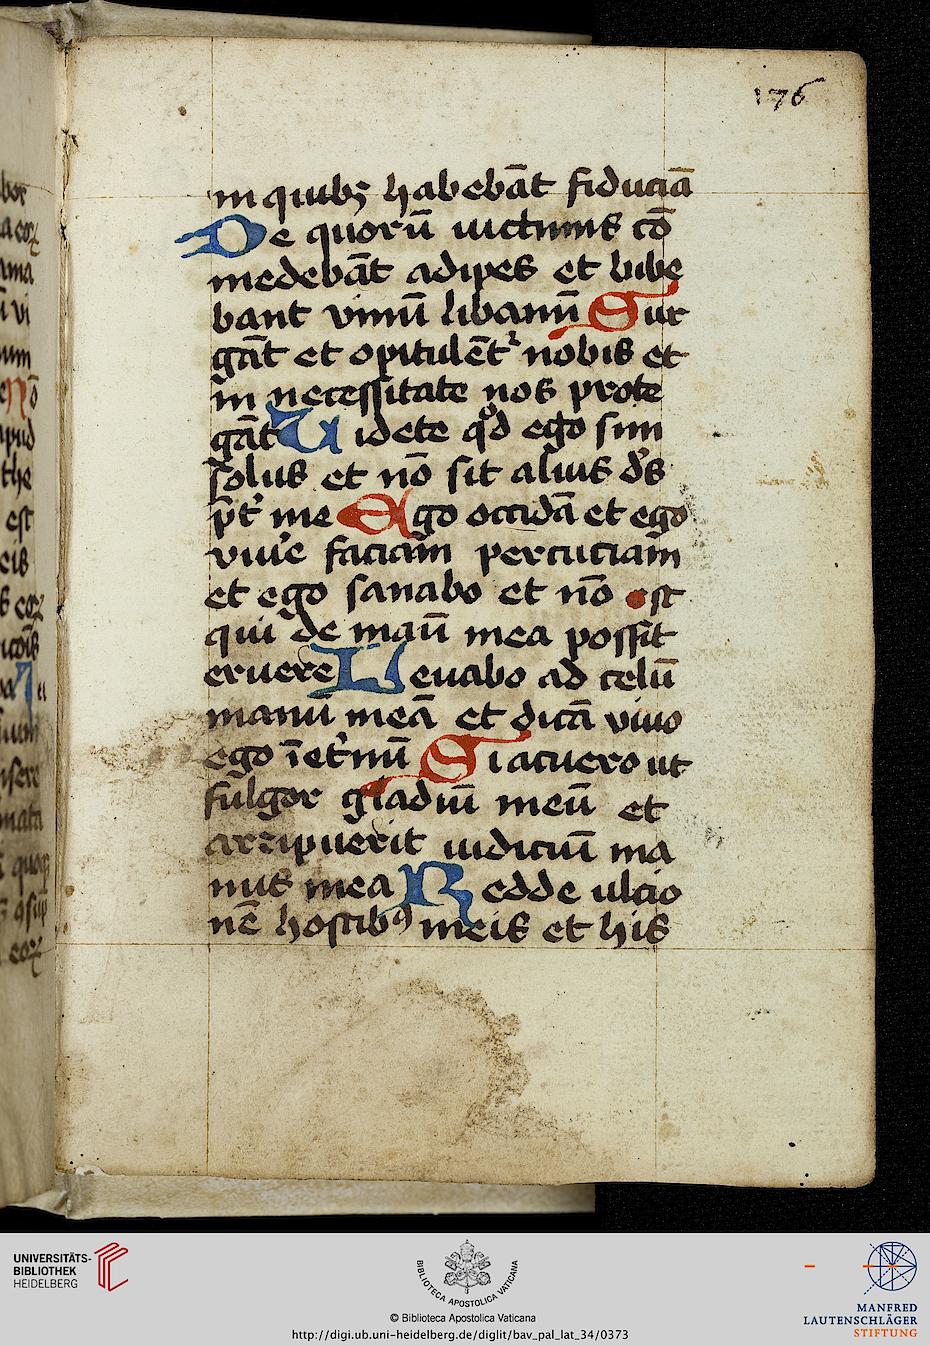 176
in quibꝫ habebāt fiduciā
De quorū uictimis cō
medebāt adipes et bibe
bant vinū libanū Sur
gāt et opitulēt᷑ nobis et
in necessitate nos prote
gāt Uidete qͦd ego sim
solus et nō sit alius dꝰs
p̄t᷑ me Ego occidā et ego
viue᷑ faciam percutiam
et ego sanabo et nō est
qui de manū mea possit
eruere Leuabo ad celū
manū meā et dicā viuo
ego īet᷑nū Si acuero ut
fulgor gladiū meū et
arripuerit iudiciū ma
nus mea Redde ultio
nē hostibꝰ meis et his
UNIVERSITÄTS-
BIBLIOTHEK
HEIDELBERG
BIBLIOTECA APOSTOLICA VATICANA
© Biblioteca Apostolica Vaticana
http://digi.ub.uni-heidelberg.de/diglit/bav_pal_lat_34/0373
MANFRED
LAUTENSCHLÄGER
STIFTUNG